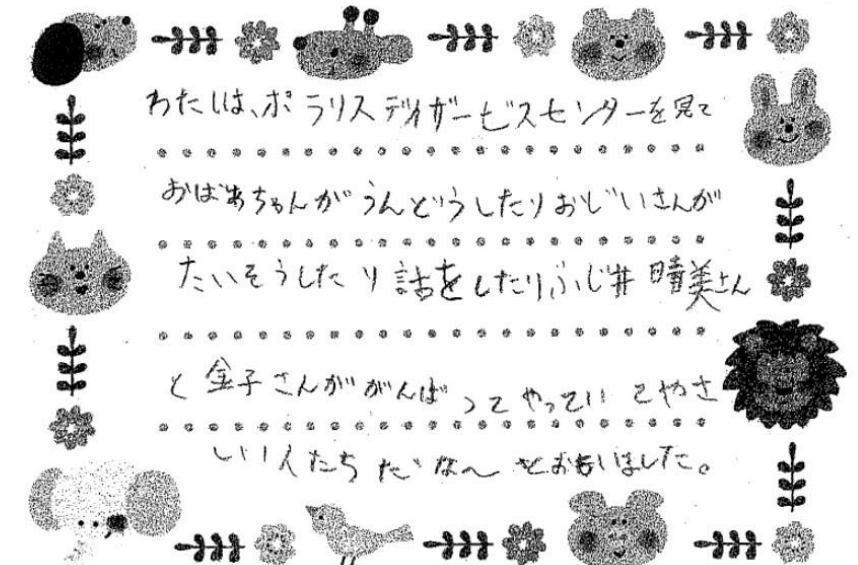 わたしは、ポラリスデイサービスセンターを見て
おばあちゃんがうんどうしたりおじいさんが
たいそうしたり話をしたりふじ井晴美さん
と金子さんががんばってやっていてやさ
しい人たちだなーとおもいました。